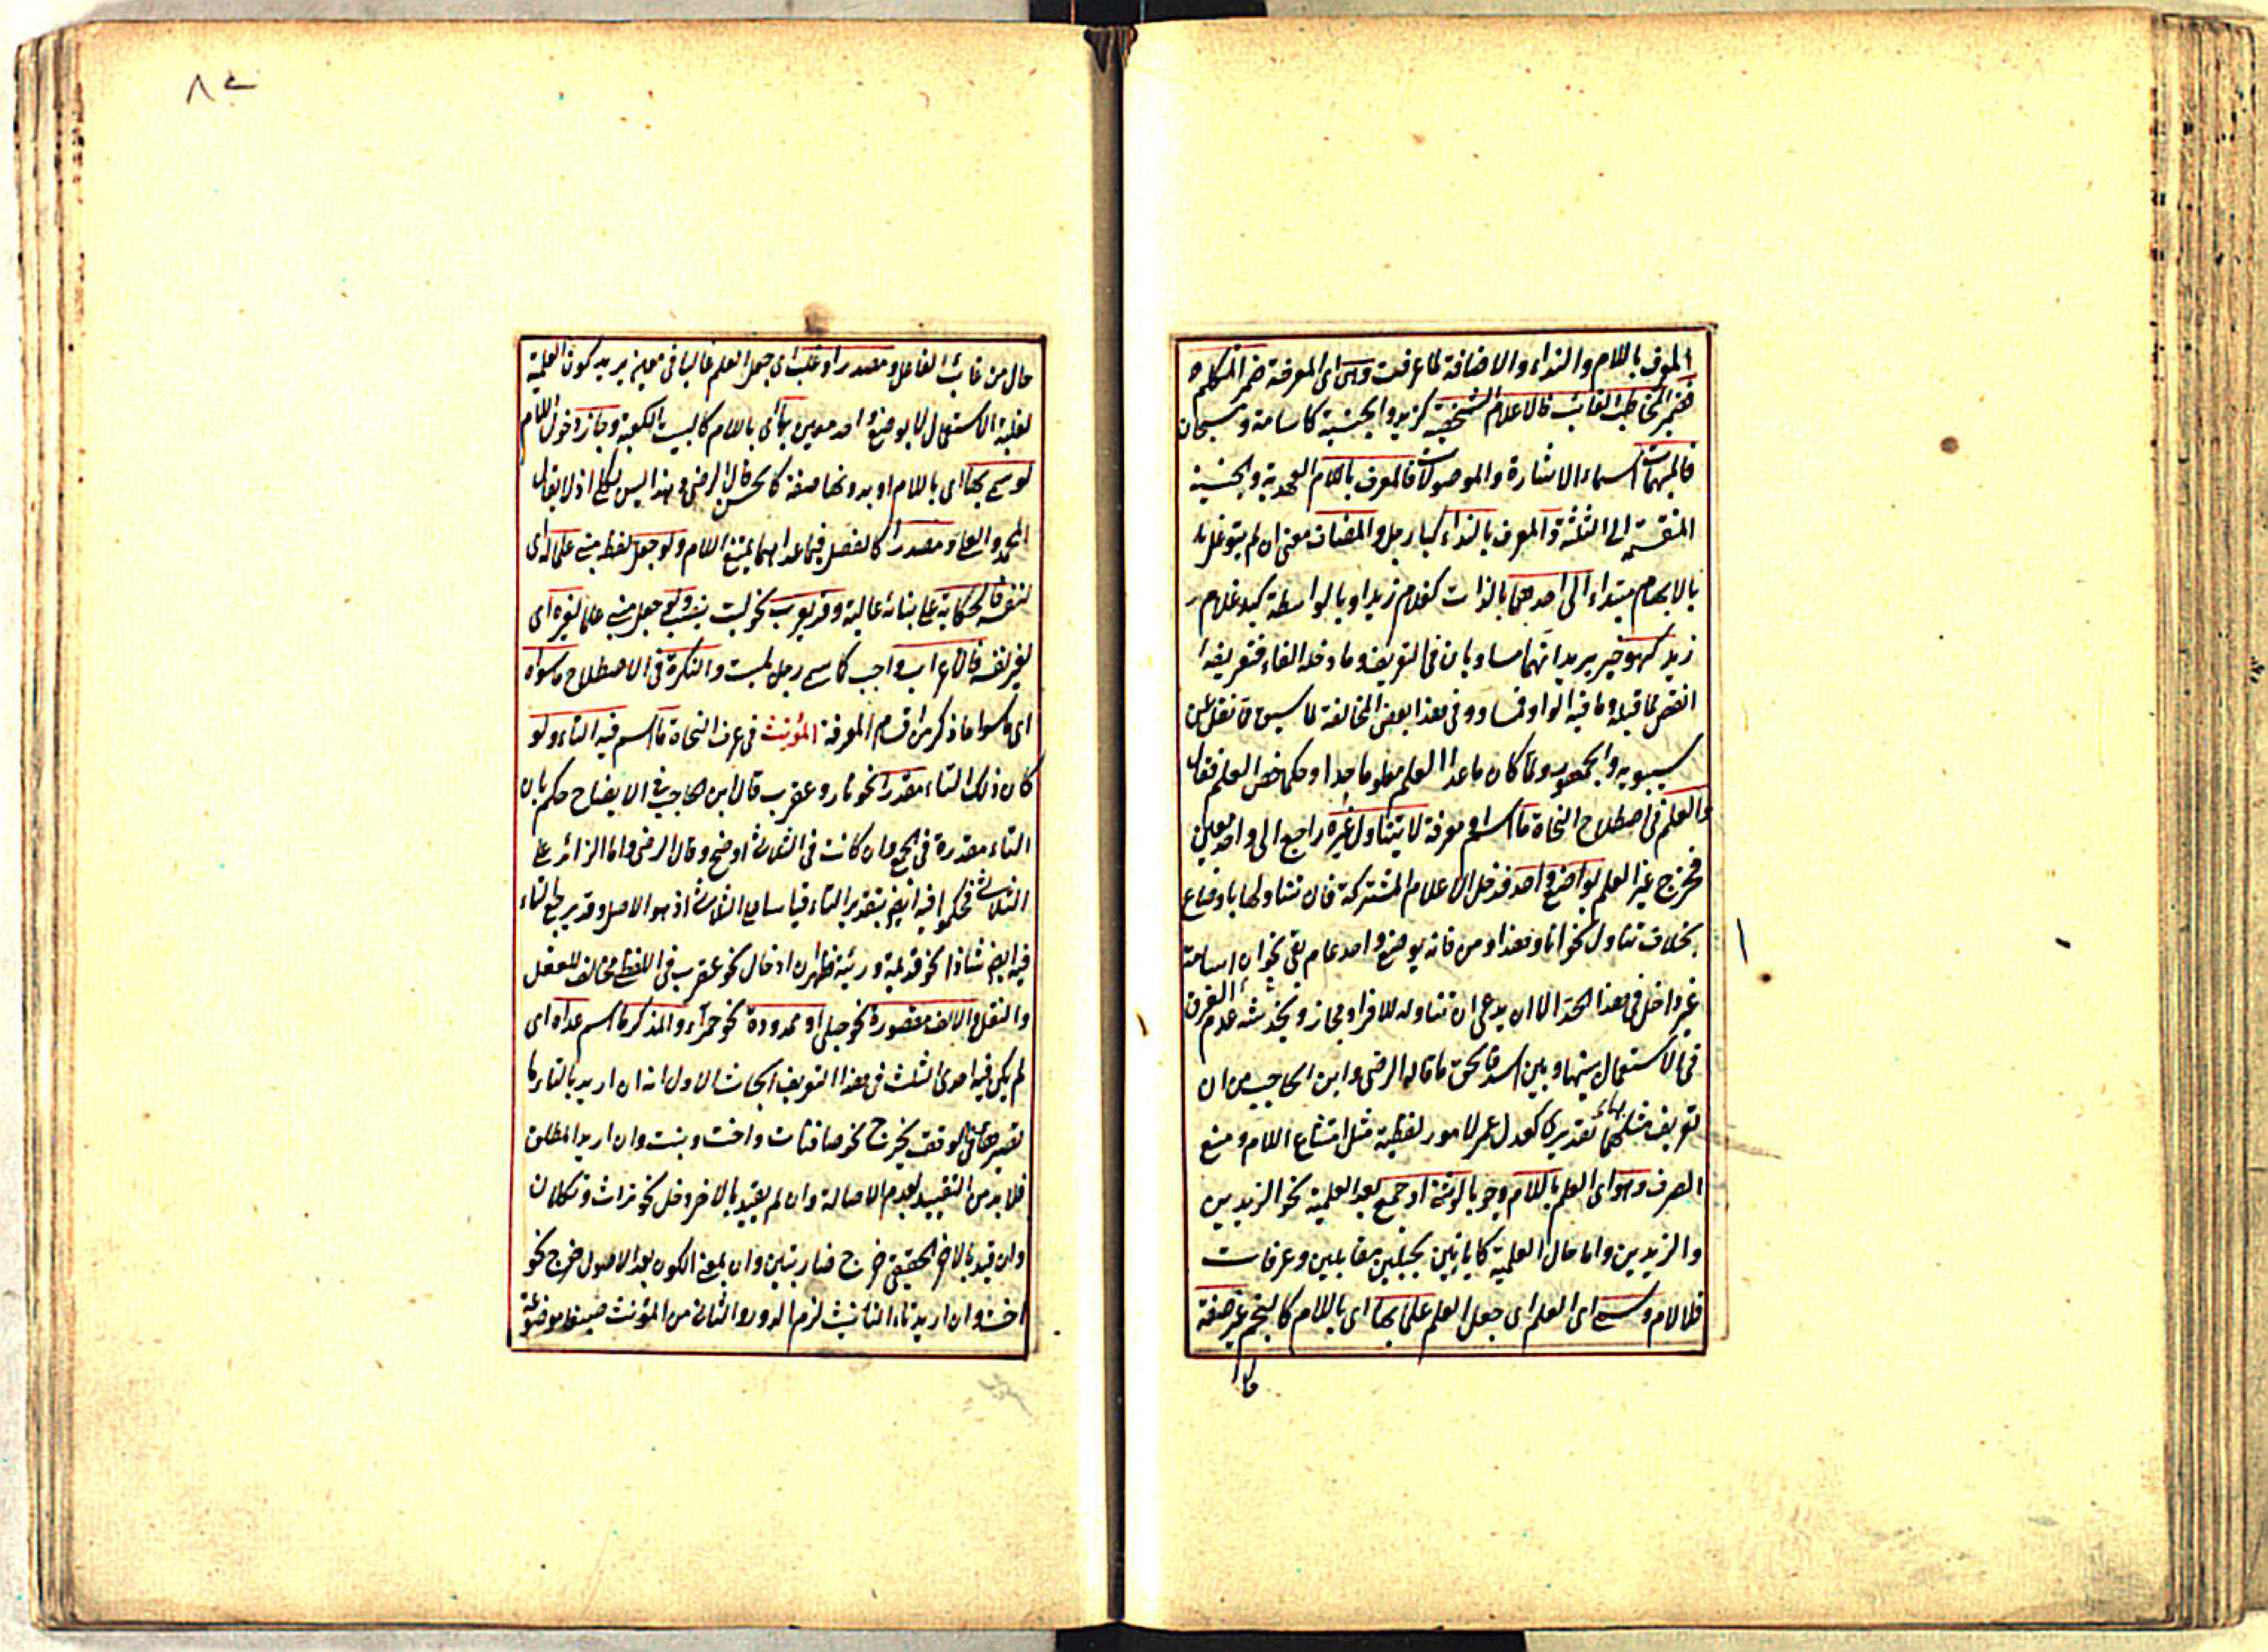 المعرف باللام والنداء والاضافة لما عرفت وهى اى المعرفة ضمير المتكلم
فضمير المخاطب الغائب فالاعلام الشخصية كزيد والجنسية كاسامة وسبحان
فالمبهمات اسماء الاشارة والموصولات فالمعرف باللام العهدية والجنسية
المنقسمة الى الثلثة والمعرف بالنداء كيا رجل والمضاف معنى ان لم يتوغل
بالابهام مبتداء الى احدهما بالذات كغلام زيد او بالواسطة كيد غلام
زيد كهو خير يريد انهما مساويان فى التعريف وما دخله الفاء فتعريفه
انقص لما قبله وما فيه الواو فمساو وفى هذا بعض المخالفة لما سبق نقل عن
سيبويه والجمهور ولما كان ما عدا العلم معلوما حدا وحكما خص العلم فقال
والعلم فى اصطلاح النحاة ما اسم معرفة لا يتناول غيره راجع الى واحد معين
فخرج غير العلم بوضع واحد فدخل الاعلام المشتركة فان تناولها باوضاع
بخلاف تناول نحو انا وهذا ومن فانه بوضع واحد عام بقى نحو ان اسامة
غير داخل فى هذا الحد الا ان يدعى ان تناوله للافراد مجاز ويخدشه عدم الفرق
فى الاستعمال بينها وبين اسد فالحق ما قاله الرضى وابن الحاجب من ان
تعريف مثلها تقديرى كعدل عمر لامور لفظية مثل امتناع اللام ومنع
الصرف وهو اى العلم باللام وجوبا لو ثنى او جمع بعد العلمية نحو الزيدين
والزيدين واما حال العلمية كابانين لجبلين متقابلين وعرفات
فلا لام وسمى اى العلم اى جعل العلم علما بها اى باللام كالنجم غير صفة
حال
حال من نائب الفاعل ومصدر او غلب اى جعل العلم غالبا فى معين يريد كون العلمية
لغلبة الاستعمال لا بوضع واحد معين بها اى باللام كالبيت للكعبة وجاز دخول اللام
لو سمى بها اى باللام او بدونها صفة كالحسن قال الرضى وهذا ليس بكلى اذ لا يقال
المحمد والعلى ومصدرا كالفضل فيما عداهما يمتنع اللام ولو جعل لفظ مبنى علما له اى
لنفسه فالحكاية على بنائه غالبة وقد يعرب نحو ليت ينسب ولو جعل مبنى علما لغيره اى
لغير نفسه فالاعراب واجب كاسمى رجل بليت والنكرة فى الاصطلاح ما سواه
اى ما سوا ما ذكر من اقسام المعرفة المؤنث فى عرف النحاة ما اسم فيه التاء ولو
كان ذلك التاء مقدرا نحو نار وعقرب قال ابن الحاجب فى الايضاح حكم بان
التاء مقدرة فى الجميع وان كانت فى الثلاثى اوضح وقال الرضى واما الزائد على
الثلاثى فحكموا فيه ايضا بتقدير التاء قياسا على الثلاثى اذ هو الاصل وقد يرجع التاء
فيه ايضا شاذا نحو قديديمة ووريئة فظهر ان ادخال نحو عقرب فى اللفظى مخالف للعقل
والنقل والالف مقصورة نحو حبلى او ممدودة نحو حمراء والمذكر ما اسم عداه اى
لم يكن فيه احدى الثلث فى هذا التعريف ابحاث الاول انه ان اريد بالتاء ما
تصير هاء فى الوقف يخرج نحو صافنات واخت وبنت وان اريد المطلق
فلا بد من التقييد بعدم الاصالة وان لم يقيد بالاخر دخل نحو تراث وتكلان
وان قيد بالاخر الحقيقى خرج ضاربتين وان بمعنى الكون بعد الاصول خرج نحو
اخت وان اريد تاء التانيث لزم الدور والثانى من المؤنث صيغا موضوعة